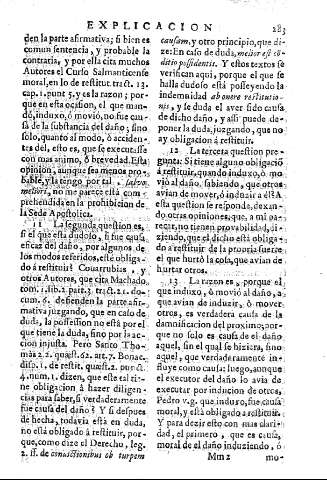 EXPLICACION
283
den la parte afirmativa; si bien es
comun sentencia, y probable la
contraria, y por ella cita muchos
Autores el Curso Salmanticense
moral, en lo de restitut. tract. 13.
cap. 1. punt. 5. y es la razon; porque
en esta opinion, el que mandò,
induxo, ò moviò, no fue causa
de la substancia del daño, sino
solo, quanto al modo, ò accidentes
del, esto es, que se executasse
con mas animo, ò brevedad. Esta
opinion, aunque sea menos probable,
y la tengo por tal, salvo
meliori, no me parece està comprehendida
en la prohibicion de
la Sede Apostolica.
11 La segunda question es,
si el que està dudoso, si fue causa
eficaz del daño, por algunos de
los modos referidos, estè obligado
à restituir? Couarrubias, y
otros Autores, que cita Machado,
tom. 1. lib. 2. part. 3. tract. 21. documt.
6. defienden la parte afirmativa
juzgando, que en caso de
duda, la possession no està por el
que tiene la duda, sino por la accion
injusta. Pero Santo Thomàs
2. 2. quæst. 62. art. 7. Bonac.
disp. 1. de restit. quæst. 2. punt.
4. num. 1. dizen, que este tal tiene
obligacion à hazer diligencias
para saber, si verdaderamente
fue causa del daño? Y si despues
de hecha, todavia està en duda,
no està obligado à restituir, porque,
como dize el Derecho, leg.
2. ff. de conuictionibus ob turpem
causam, y otro principio, que dize:
En caso de duda, melior est conditio
possidentis. Y estos textos se
verifican aqui, porque el que se
halla dudoso està posseyendo la
indemnidad ab onere restitutionis,
y se duda el aver sido causa
de dicho daño, y assi puede deponer
la duda, juzgando, que no
ay obligacion à restituir.
12 La tercera question pregunta:
Si tiene alguna obligacion
à restituir, quando induxo, ò moviò
al daño, sabiendo, que otros
avian de mover, ò induzir à èl? A
esta question se responde, dexando
otras opiniones, que, à mi parecer,
no tienen probavilidad, diziendo,
que el dicho està obligado
à restituir de la propria suerte
el que hurtò la cosa, que avian de
hurtar otros.
13 La razon es, porque el
que induxo, ò moviò al daño, à
que avian de induzir, ò mover
otros, es verdadera causa de la
damnificacion del proximo; porque
no solo es causa de el daño
aquel, sin el qual se hiziera, sino
aquel, que verdaderamente influye
como causa: luego, aunque
el executor del daño lo avia de
executar por inducion de otros,
Pedro v. g. que induxo, fue causa
moral, y està obligado à restituir.
Y para dezir esto con mas claridad,
el primero, que es causa
moral de el daño induziendo, ò
Mm 2
mo-